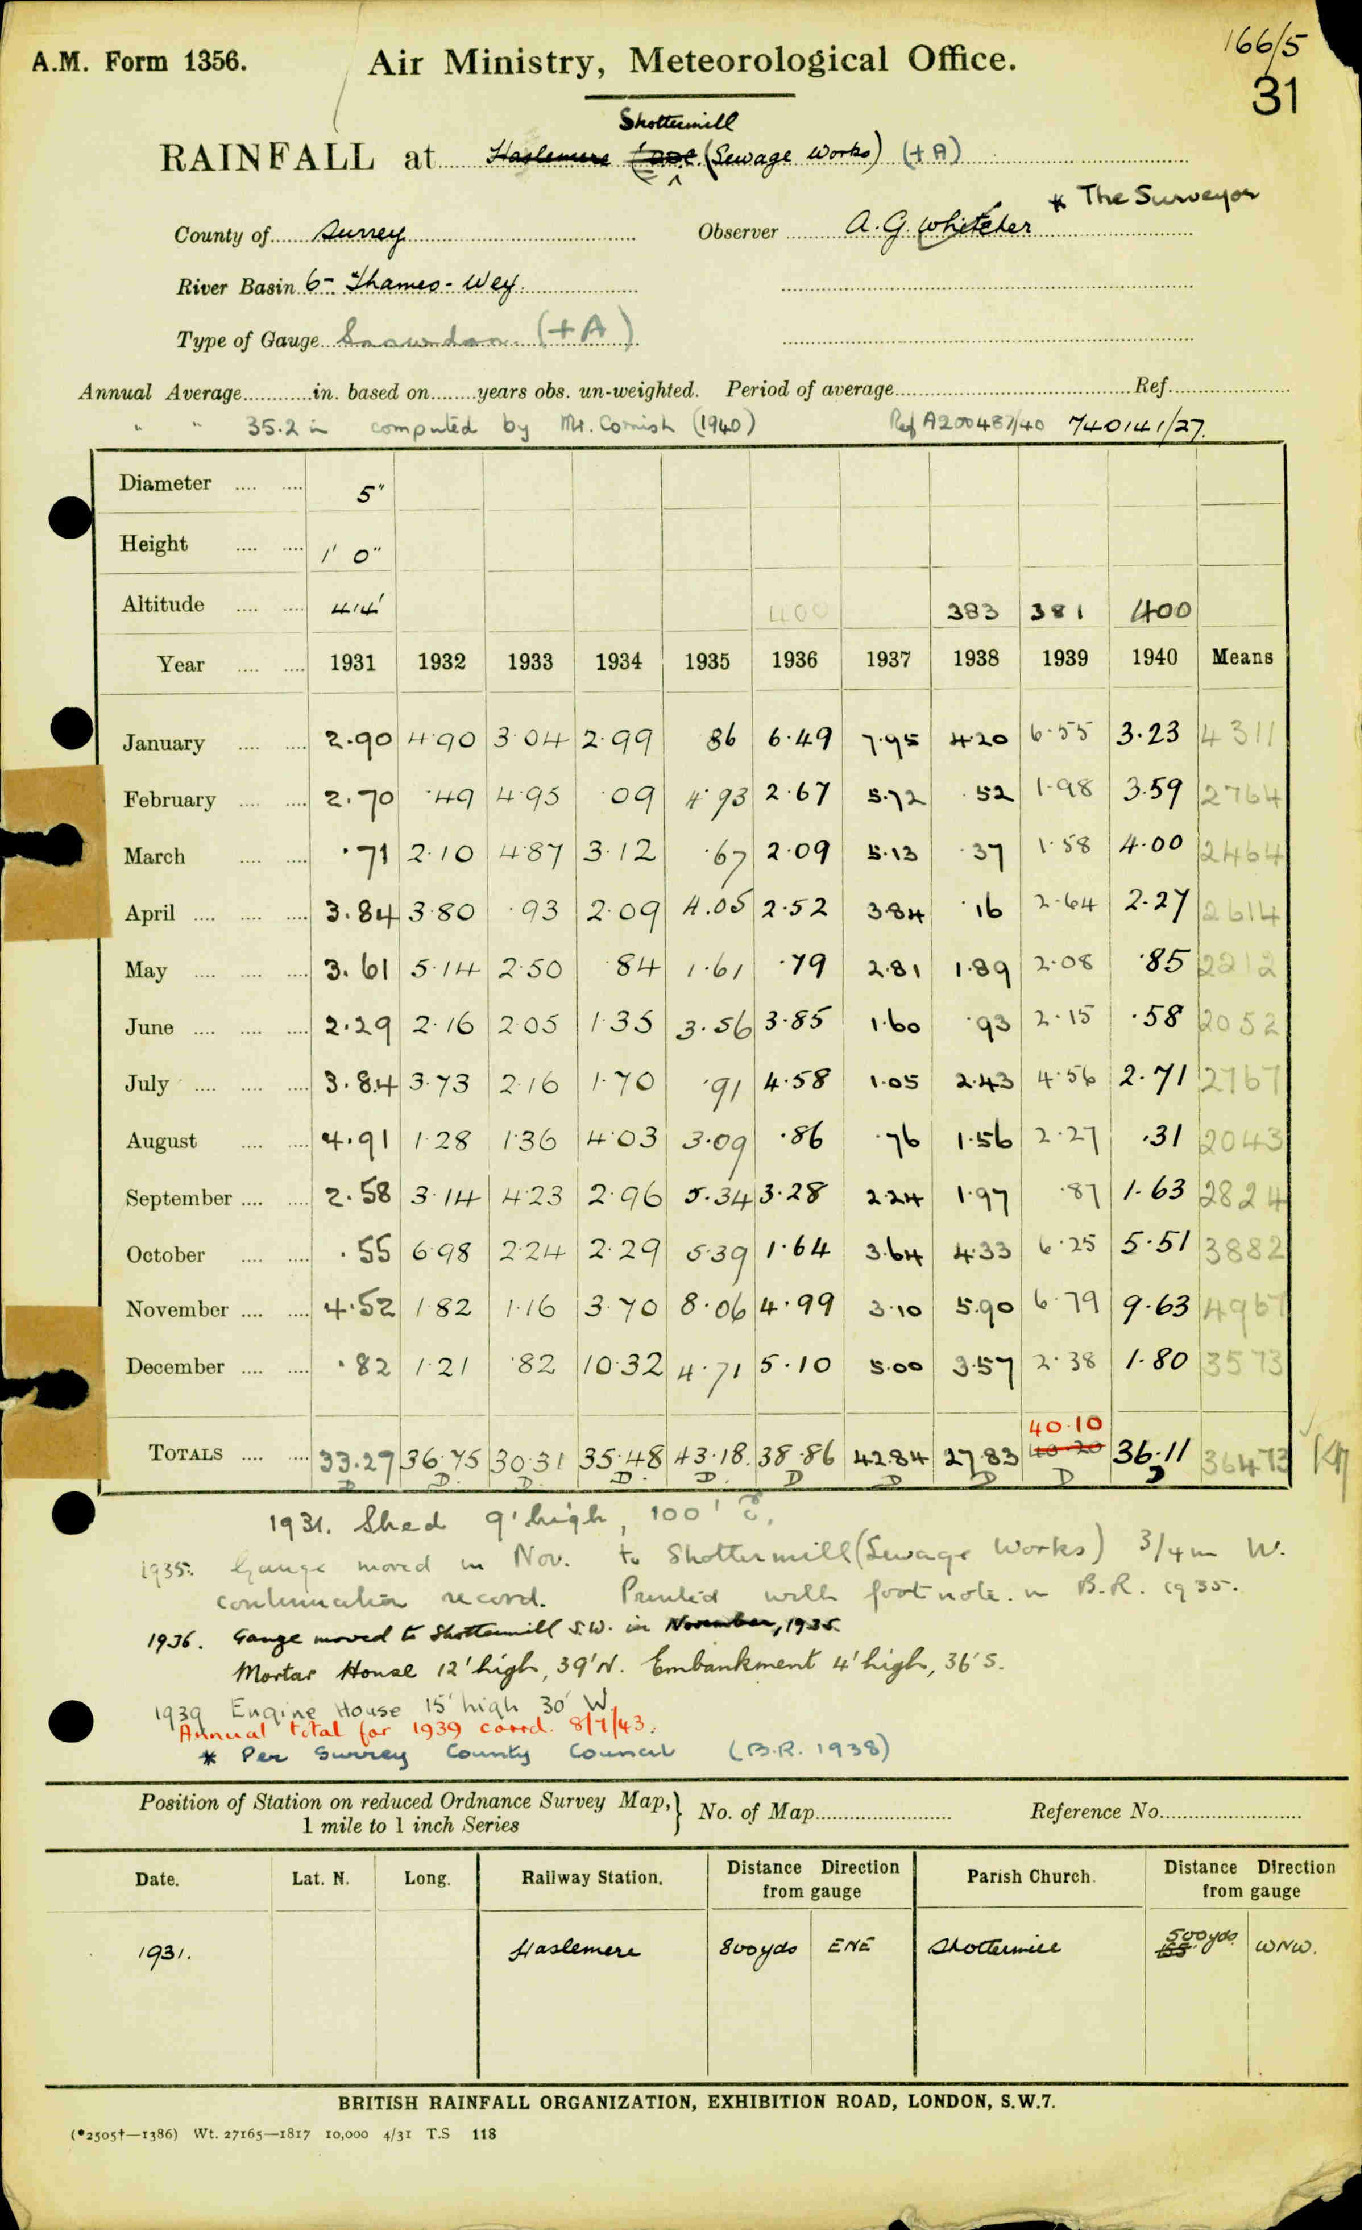 166/5
A.M. Form 1356. Air Ministry, Meteorological Office. 31
Shottermill
RAINFALL at Haslemere (Sewage Works) (+A)
* The Surveyor
County of Surrey Observer A. G. Whitcher
River Basin 6- Thames - Wey.
Type of Gauge Snowdon (+A)
Annual Average in. based on years obs. un-weighted. Period of average Ref.
" " 35.2 in computed by Mr. Cornish (1940) Ref A200487/40 740141/27.
Diameter 5"
Height 1' 0"
Altitude 414' 400 383 381 400
Year 1931 1932 1933 1934 1935 1936 1937 1938 1939 1940 Means
January 2.90 4.90 3.04 2.99 .86 6.49 7.95 4.20 6.55 3.23 4311
February 2.70 .49 4.95 .09 4.93 2.67 5.72 .52 1.98 3.59 2764
March .71 2.10 4.87 3.12 .67 2.09 5.13 .37 1.58 4.00 2464
April 3.84 3.80 .93 2.09 4.05 2.52 3.84 .16 2.64 2.27 2614
May 3.61 5.14 2.50 .84 1.61 .79 2.81 1.89 2.08 .85 2212
June 2.29 2.16 2.05 1.35 3.56 3.85 1.60 .93 2.15 .58 2052
July 3.84 3.73 2.16 1.70 .91 4.58 1.05 2.43 4.56 2.71 2767
August 4.91 1.28 1.36 4.03 3.09 .86 .76 1.56 2.27 .31 2043
September 2.58 3.14 4.23 2.96 5.34 3.28 2.24 1.97 .87 1.63 2824
October .55 6.98 2.24 2.29 5.39 1.64 3.64 4.33 6.25 5.51 3882
November 4.52 1.82 1.16 3.70 8.06 4.99 3.10 5.90 6.79 9.63 4967
December .82 1.21 .82 10.32 4.71 5.10 5.00 3.57 2.38 1.80 3573
40.10
TOTALS 33.27 36.75 30.31 35.48 43.18 38.86 42.84 27.83 40.20 36.11 36473
D D D D D D D D D D
1931. Shed 9' high, 100' E.
1935. Gauge moved in Nov. to Shottermill (Sewage Works) 3/4 m W.
continuation record. Printed with footnote in B.R. 1935.
1936. Gauge moved to Shottermill S.W. in November, 1935.
Mortar House 12' high, 39' N. Embankment 4' high, 36' S.
1939 Engine House 15' high 30' W.
Annual total for 1939 corrd. 8/7/43.
* Per Surrey County Council (B.R. 1938)
Position of Station on reduced Ordnance Survey Map, 1 mile to 1 inch Series } No. of Map Reference No.
Date. Lat. N. Long. Railway Station. Distance Direction from gauge Parish Church. Distance Direction from gauge
1931. Haslemere 800 yds ENE Shottermill 500 yds. WNW.
BRITISH RAINFALL ORGANIZATION, EXHIBITION ROAD, LONDON, S.W.7.
(*2505†—1386) Wt. 27165—1817 10,000 4/31 T.S 118